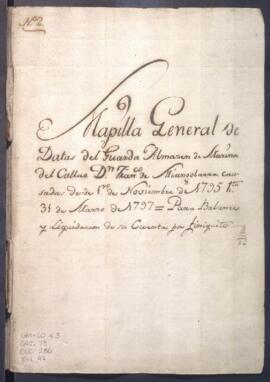 Nº 2
Mapilla General de
Datas del Guarda Almazen de Marina
del Callao Dn Franco de
sadas desde 1ro de Noviembre de 1795 hta
31 de Marzo de 1797 = Para Balance
y Liquidacion de su Cuenta por finiquito